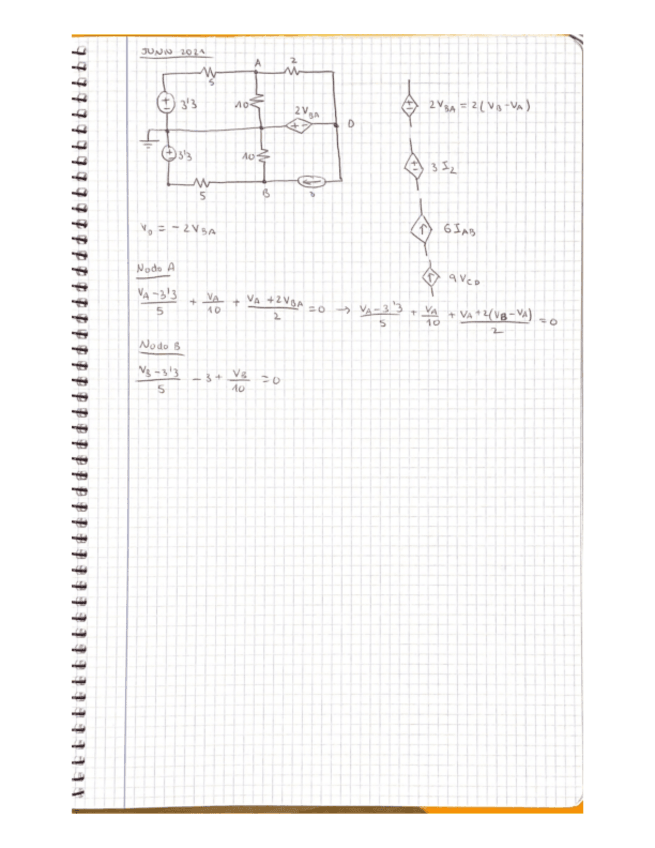 JUNIO 2021
A
2
5
3'3
10
2VBA
D
3'3
10
5
B
3
2VBA = 2(VB-VA)
3I2
6IAB
9VCD
VD = -2VBA
Nodo A
VA-3'3/5 + VA/10 + VA+2VBA/2 = 0 → VA-3'3/5 + VA/10 + VA+2(VB-VA)/2 = 0
Nodo B
VB-3'3/5 - 3 + VB/10 = 0